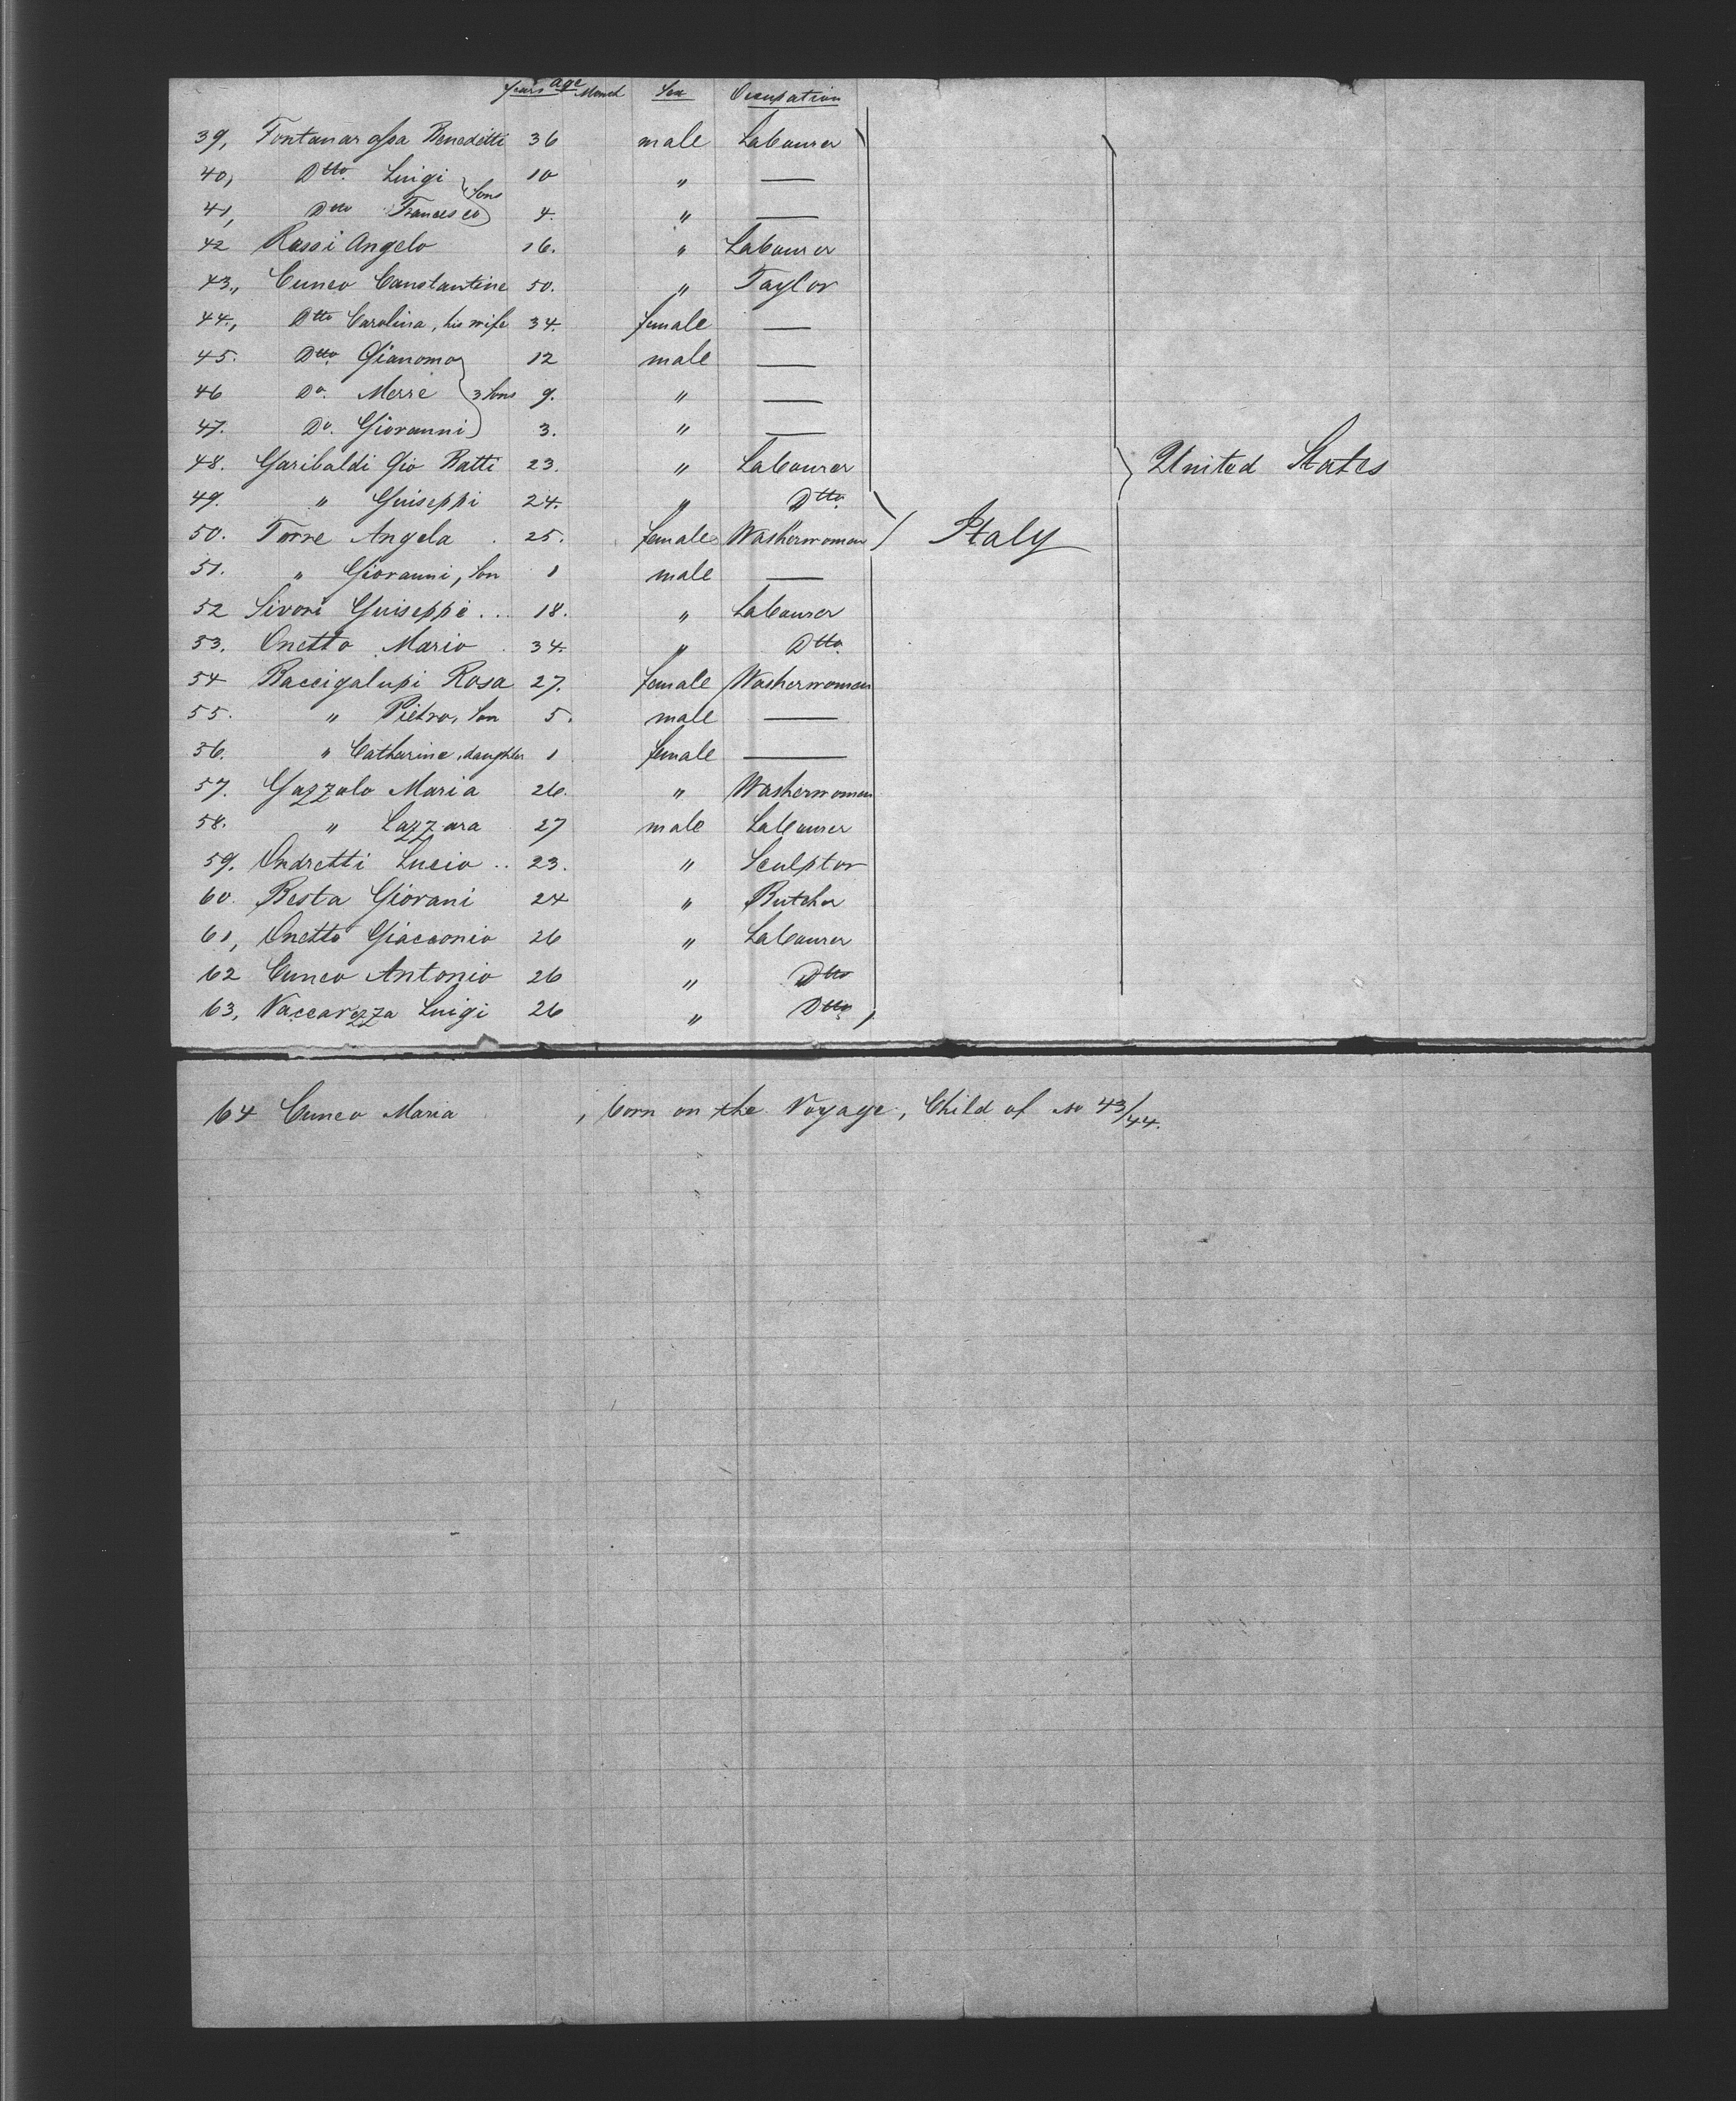 Years Age Month Sex Occupation
39, Fontanarossa Benedetti 36 male Labourer
40, Dtto Luigi } Sons 10 " —
41, Dtto Francesco } 4. " —
42 Rossi Angelo 16. " Labourer
43., Cuneo Constantine 50. " Taylor
44., Dtto Carolina, his wife 34. female —
45. Dtto Gianomo } 12 male —
46 Do. Merre } 3 Sons 9. " —
47. Do. Giovanni } 3. " —
48. Garibaldi Gio Batti 23. " Labourer } United States
49. " Guiseppi 24. " Dtto.
50. Torre Angela . 25. female Washerwoman } Italy
51. " Giovanni, Son 1 male —
52 Sivori Guiseppe ... 18. " Labourer
53. Onetto Mario . 34. " Dtto.
54 Baccigalupi Rosa 27. female Washerwoman
55. " Pietro, Son 5. male —
56. " Catharine, daughter 1 female —
57. Gazzolo Maria 26. " Washerwoman
58. " Lazzara 27 male Labourer
59. Ondretti Lucio .. 23. " Sculptor
60. Besta Giovani 24 " Butcher
61, Onetto Giacconio 26 " Labourer
62 Cuneo Antonio 26 " Dtto
63, Vaccarezza Luigi 26 " Dtto,
64 Cuneo Maria , born on the Voyage, Child of No 43/44.